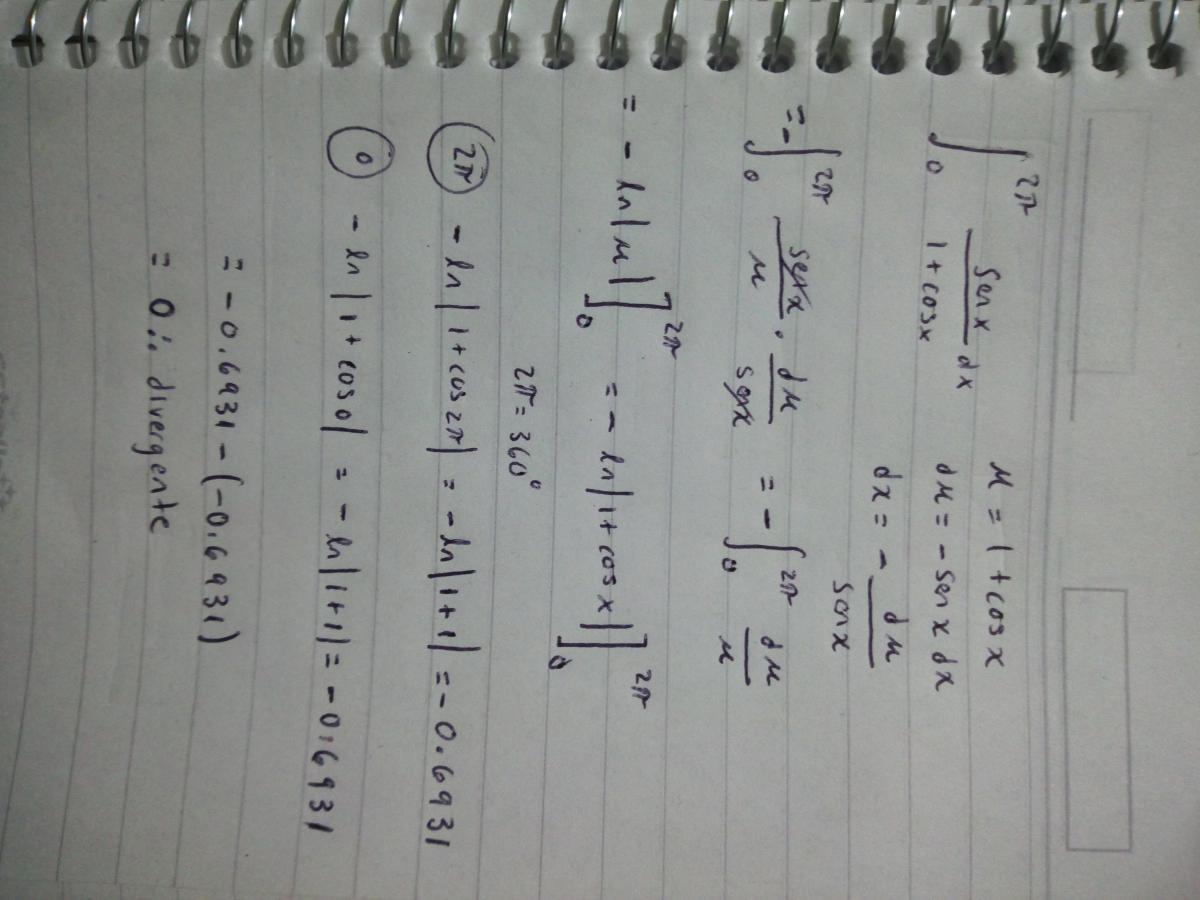 ∫₀^2π sen x / 1 + cos x dx    u = 1 + cos x
du = - sen x dx
dx = - du / sen x
= - ∫₀^2π sen x / u · du / sen x = - ∫₀^2π du / u
= - ln |u| ]₀^2π = - ln |1 + cos x| ]₀^2π
2π = 360°
2π - ln |1 + cos 2π| = - ln |1 + 1| = - 0.6931
0 - ln |1 + cos 0| = - ln |1 + 1| = - 0.6931
= - 0.6931 - (-0.6931)
= 0 ∴ divergente